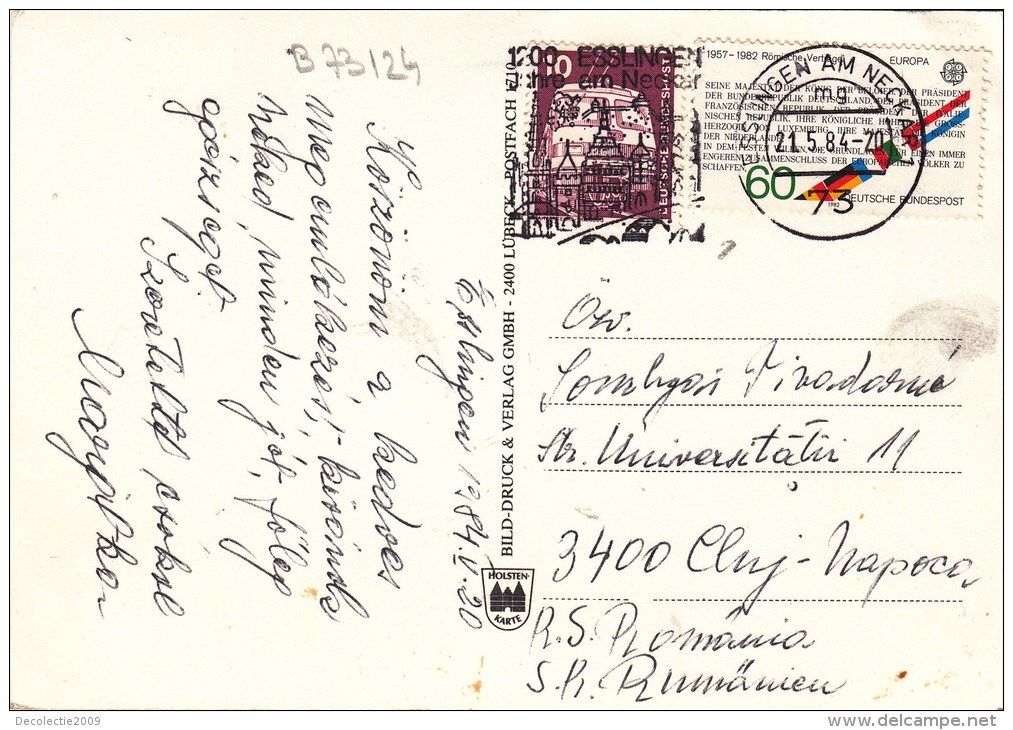 B 73124
Köszönöm a kedves
megemlékezését, kívánok
neked, minden jót, főleg
egészséget
Szeretettel csókol
Margitka
Esslingen 1984.V.20
BILD-DRUCK & VERLAG GMBH - 2400 LÜBECK - POSTFACH
HOLSTEN-
KARTE
1200 ESSLINGEN
Jahre am Neckar
DEUTSCHE BUNDESPOST
1957–1982 Römische Verträge
EUROPA
SEINE MAJESTÄT DER KÖNIG DER BELGIER, DER PRÄSIDENT
DER BUNDESREPUBLIK DEUTSCHLAND, DER PRÄSIDENT DER
FRANZÖSISCHEN REPUBLIK, DER PRÄSIDENT DER ITALIE-
NISCHEN REPUBLIK, IHRE KÖNIGLICHE HOHEIT DIE GROSS-
HERZOGIN VON LUXEMBURG, IHRE MAJESTÄT DIE KÖNIGIN
DER NIEDERLANDE
IN DEM FESTEN WILLEN, DIE GRUNDLAGEN FÜR EINEN IMMER
ENGEREN ZUSAMMENSCHLUSS DER EUROPÄISCHEN VÖLKER ZU
SCHAFFEN
60
1982
DEUTSCHE BUNDESPOST
ESSLINGEN AM NECKAR 1
mg
21.5.84-20
73
Özv.
Somlyai Tivadarné
Str. Universității 11
3400 Cluj-Napoca
R.S. România
S.R. Rumänien
Decolectie2009
www.delcampe.net